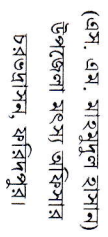 (এস. এম. মাহমুদুল হাসান)
উপজেলা মৎস্য অফিসার
চরভদ্রাসন, ফরিদপুর।